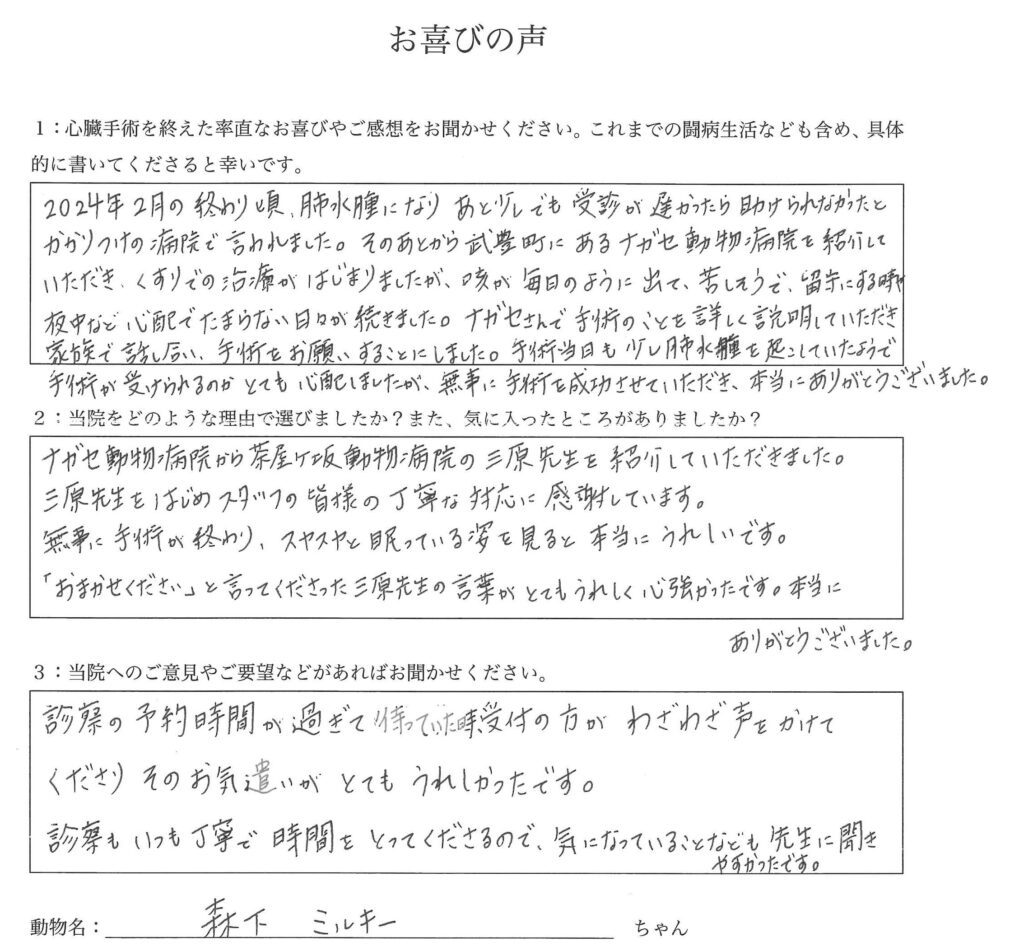 お喜びの声
1：心臓手術を終えた率直なお喜びやご感想をお聞かせください。これまでの闘病生活なども含め、具体
的に書いてくださると幸いです。
2024年2月の終わり頃、肺水腫になり あと少しでも受診が遅かったら助けられなかったと
かかりつけの病院で言われました。そのあとから武豊町にあるナガセ動物病院を紹介して
いただき、くすりでの治療がはじまりましたが、咳が毎日のように出て、苦しそうで、留守にする時や
夜中など心配でたまらない日々が続きました。ナガセさんで手術のことを詳しく説明していただき
家族で話し合い、手術をお願いすることにしました。手術当日も少し肺水腫を起こしていたようで
手術が受けられるのかとても心配しましたが、無事に手術を成功させていただき、本当にありがとうございました。
2：当院をどのような理由で選びましたか？また、気に入ったところがありましたか？
ナガセ動物病院から茶屋ヶ坂動物病院の三原先生を紹介していただきました。
三原先生をはじめスタッフの皆様の丁寧な対応に感謝しています。
無事に手術が終わり、スヤスヤと眠っている姿を見ると本当にうれしいです。
「おまかせください」と言ってくださった三原先生の言葉がとてもうれしく心強かったです。本当に
ありがとうございました。
3：当院へのご意見やご要望などがあればお聞かせください。
診察の予約時間が過ぎて待っていた時、受付の方がわざわざ声をかけて
くださり そのお気遣いがとてもうれしかったです。
診察もいつも丁寧で時間をとってくださるので、気になっていることなども先生に聞き
やすかったです。
動物名：森下 ミルキー ちゃん